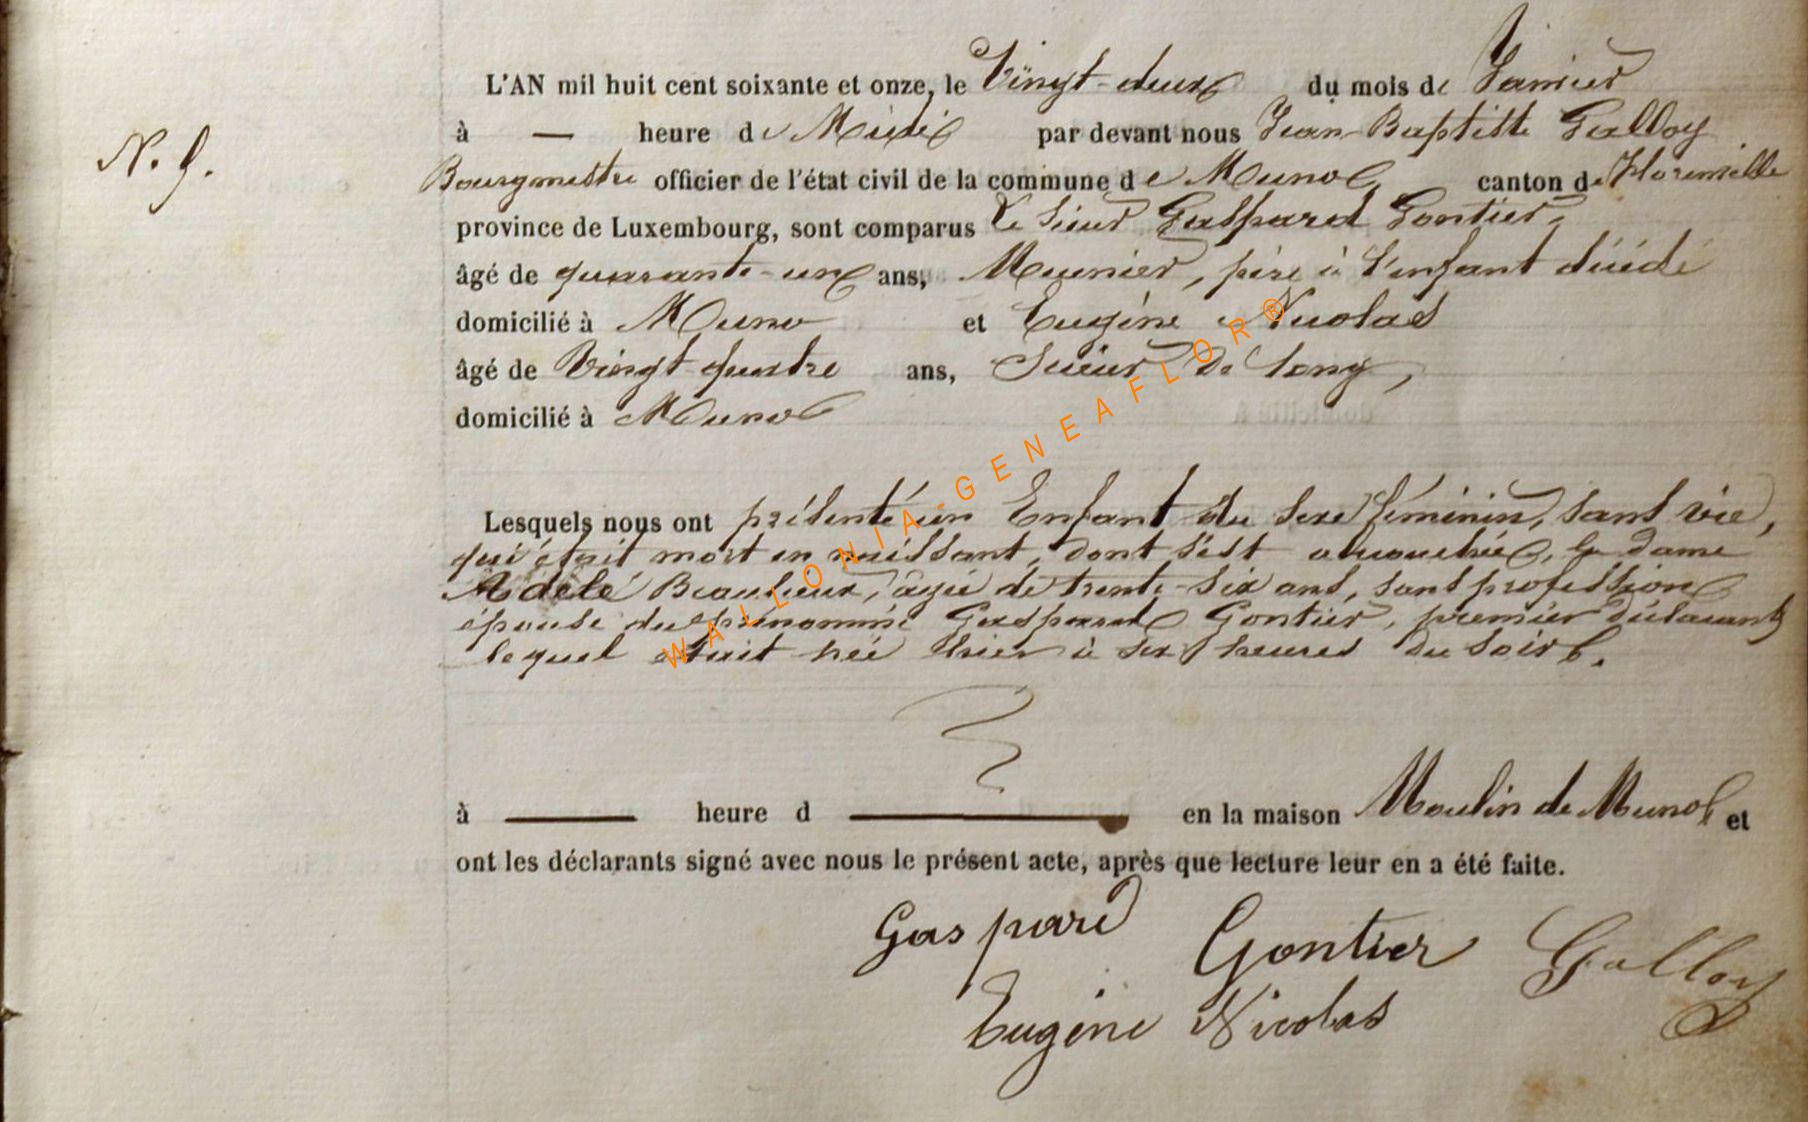 L'AN mil huit cent soixante et onze, le Vingt-deux du mois de Janvier
N. 9.
à — heure de Midi par devant nous Jean-Baptiste Galloy
Bourgmestre officier de l'état civil de la commune de Muno canton de Florenville
province de Luxembourg, sont comparus Le Sieur Gaspard Gontier,
âgé de quarante-un ans, Meunier, père à l'enfant décédé
domicilié à Muno et Eugène Nicolas
âgé de Vingt-quatre ans, Scieur de long,
domicilié à Muno
Lesquels nous ont présenté un Enfant du sexe féminin, sans vie,
qui était mort en naissant, dont s'est accouchée, la dame
Adèle Beaulieux, âgée de trente-six ans, sans profession
épouse du prénommé Gaspard Gontier, premier déclarant
lequel était née hier à six heures du soir.
à — heure d — en la maison Moulin de Muno et
ont les déclarants signé avec nous le présent acte, après que lecture leur en a été faite.
Gaspard Gontier Galloy
Eugène Nicolas
WALLONIA-GENEAFLOR®